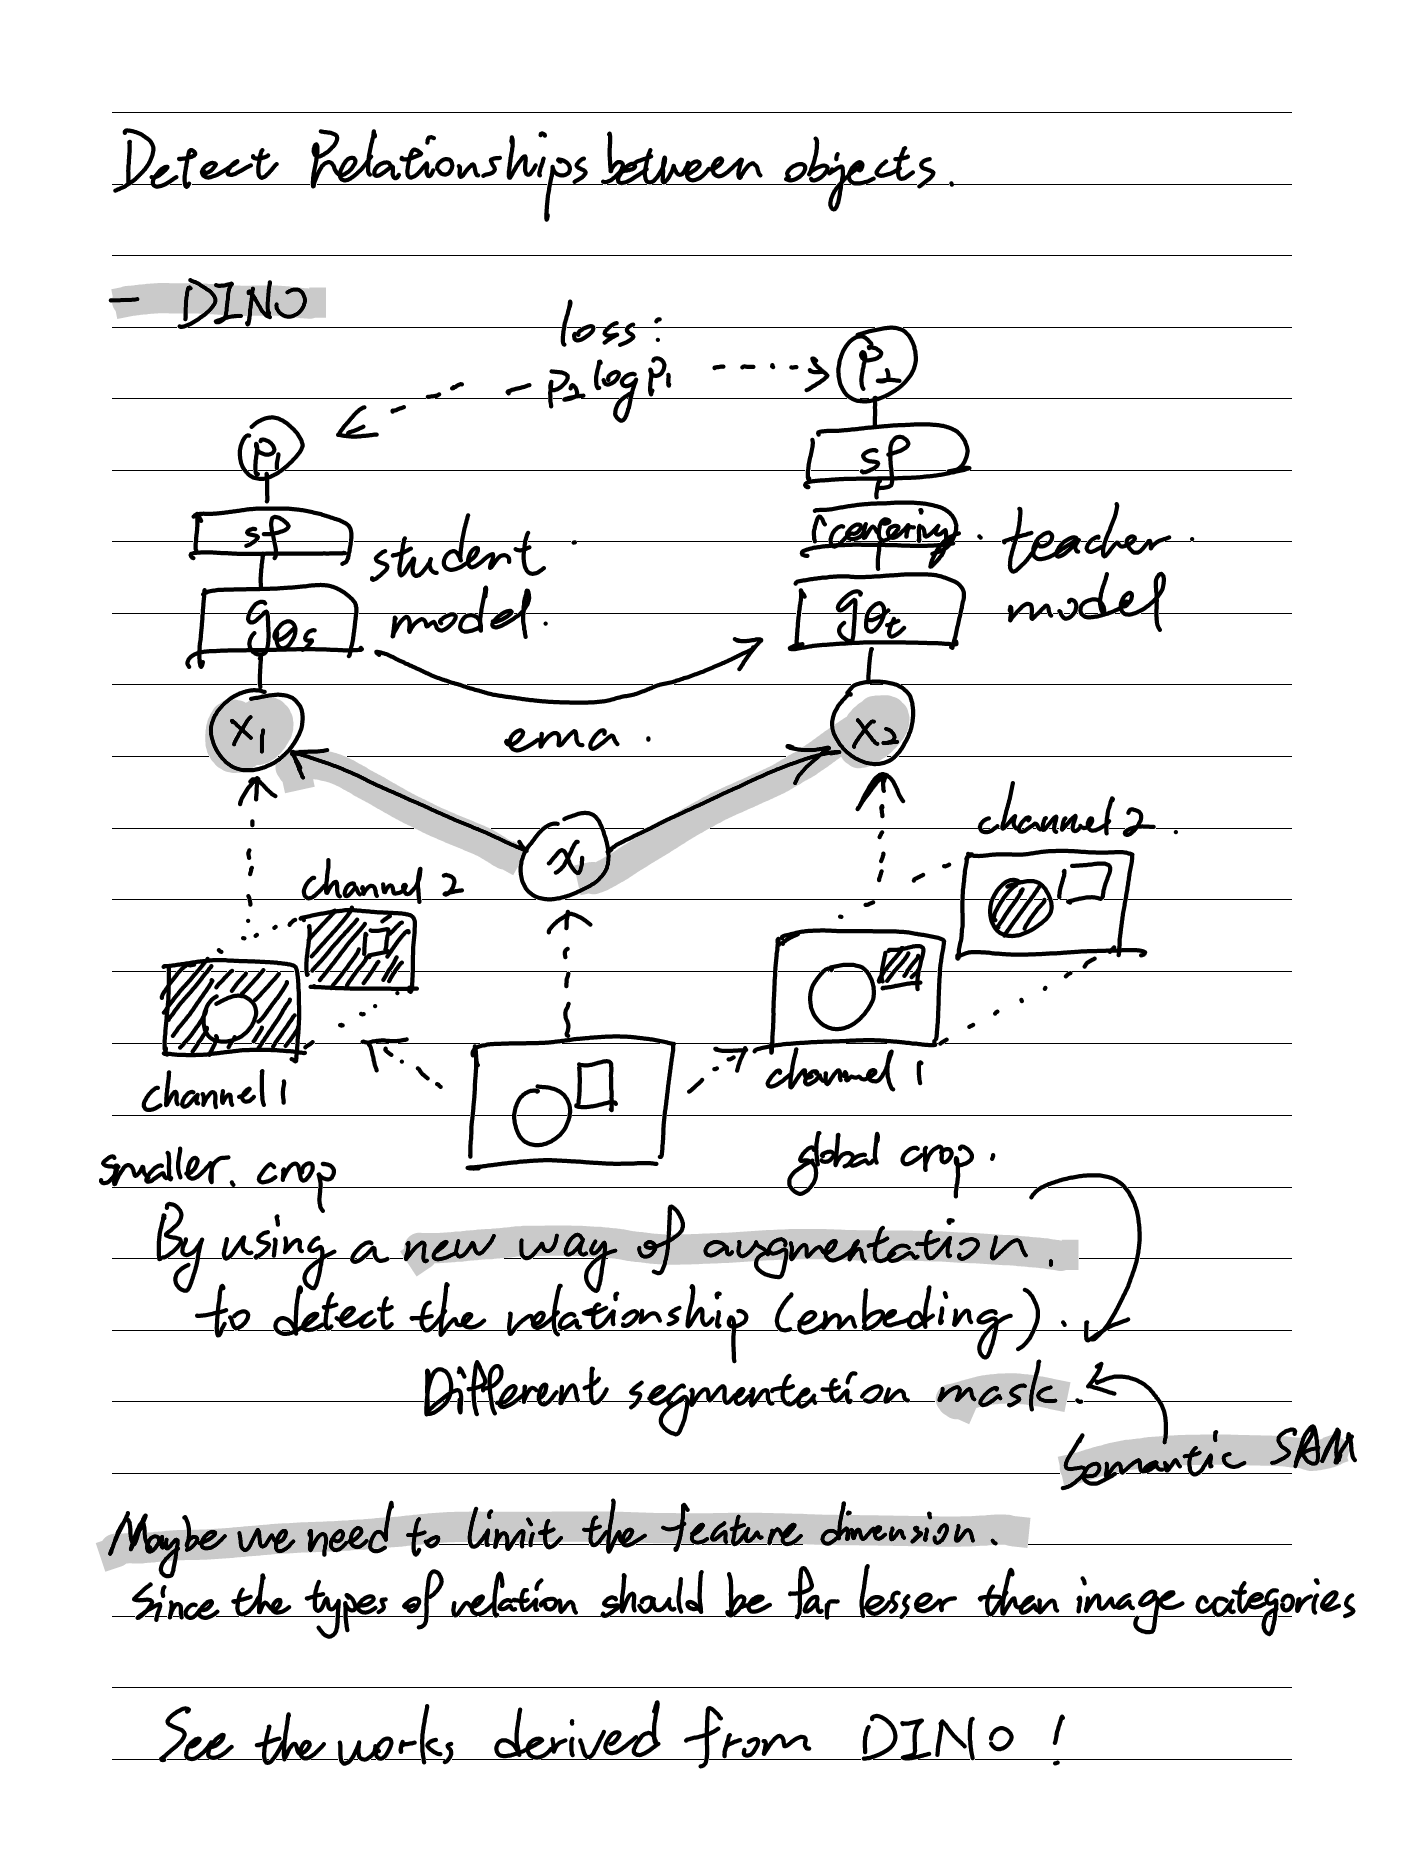 Detect Relationships between objects.
- DINO
loss:
- p2 log p1
p2
p1
sf
sf
centering.
student model.
teacher model
gθs
gθt
x1
ema.
x2
x
channel 2
channel 2.
channel 1
channel 1
smaller. crop
global crop.
By using a new way of augmentation.
to detect the relationship (embeding).
Different segmentation mask.
Semantic SAM
Maybe we need to limit the feature dimension.
Since the types of relation should be far lesser than image categories
See the works derived from DINO!